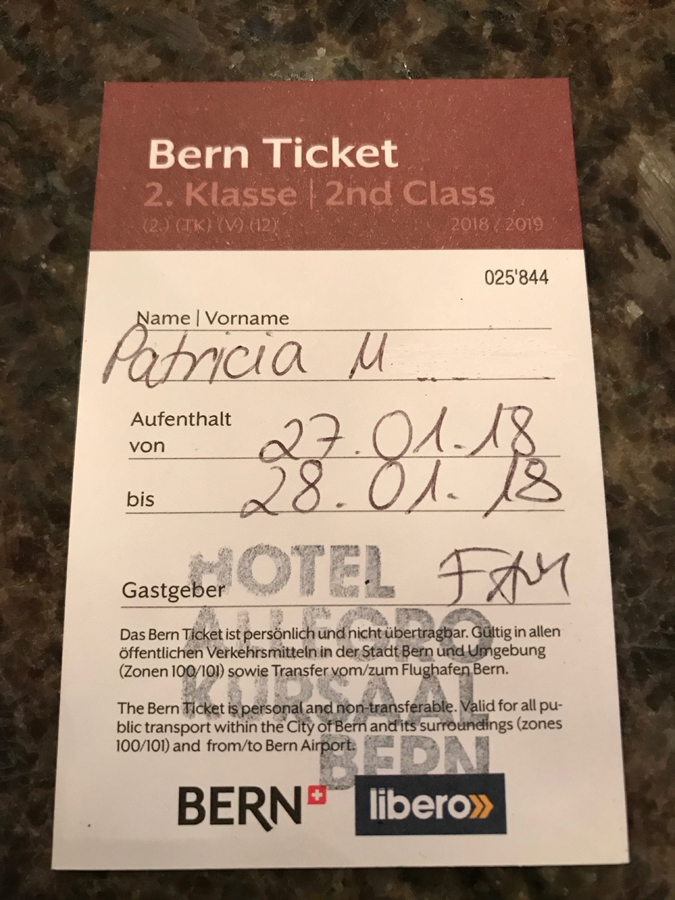 Bern Ticket
2. Klasse | 2nd Class
(2.) (TK) (V) (12) 2018 / 2019
025'844
Name | Vorname
Patricia M
Aufenthalt
von 27.01.18
bis 28.01.18
HOTEL
Gastgeber
ALLEGRO
Das Bern Ticket ist persönlich und nicht übertragbar. Gültig in allen
öffentlichen Verkehrsmitteln in der Stadt Bern und Umgebung
(Zonen 100/101) sowie Transfer vom/zum Flughafen Bern.
KURSAAL
The Bern Ticket is personal and non-transferable. Valid for all pu-
blic transport within the City of Bern and its surroundings (zones
100/101) and from/to Bern Airport.
BERN
BERN
libero